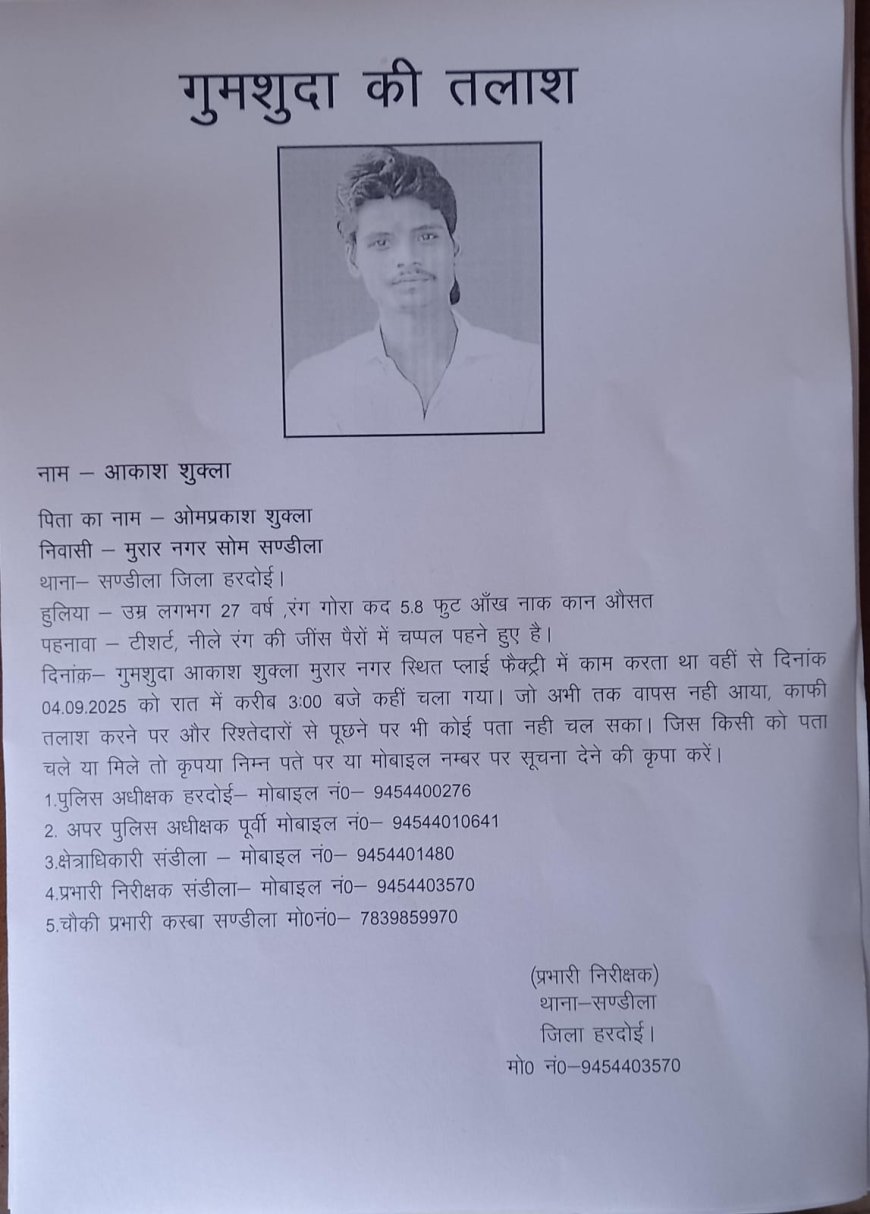 गुमशुदा की तलाश
नाम – आकाश शुक्ला
पिता का नाम – ओमप्रकाश शुक्ला
निवासी – मुरार नगर सोम सण्डीला
थाना– सण्डीला जिला हरदोई।
हुलिया – उम्र लगभग 27 वर्ष ,रंग गोरा कद 5.8 फुट आँख नाक कान औसत
पहनावा – टीशर्ट, नीले रंग की जींस पैरों में चप्पल पहने हुए है।
दिनांक– गुमशुदा आकाश शुक्ला मुरार नगर स्थित प्लाई फैक्ट्री में काम करता था वहीं से दिनांक
04.09.2025 को रात में करीब 3:00 बजे कहीं चला गया। जो अभी तक वापस नही आया, काफी
तलाश करने पर और रिश्तेदारों से पूछने पर भी कोई पता नही चल सका। जिस किसी को पता
चले या मिले तो कृपया निम्न पते पर या मोबाइल नम्बर पर सूचना देने की कृपा करें।
1.पुलिस अधीक्षक हरदोई– मोबाइल नं0– 9454400276
2. अपर पुलिस अधीक्षक पूर्वी मोबाइल नं0– 94544010641
3.क्षेत्राधिकारी संडीला – मोबाइल नं0– 9454401480
4.प्रभारी निरीक्षक संडीला– मोबाइल नं0– 9454403570
5.चौकी प्रभारी कस्बा सण्डीला मो0नं0– 7839859970
(प्रभारी निरीक्षक)
थाना–सण्डीला
जिला हरदोई।
मो0 नं0–9454403570